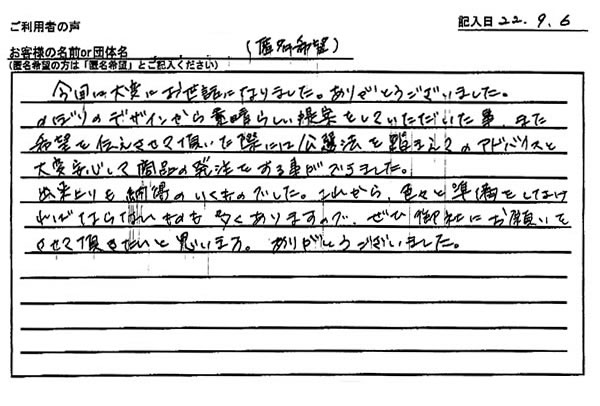 ご利用者の声
記入日 22.9.6
お客様の名前or団体名 (匿名希望)
(匿名希望の方は「匿名希望」とご記入ください)
今回は大変にお世話になりました。ありがとうございました。
のぼりのデザインから素晴らしい提案をしていただいた事、また
希望を伝えさせて頂いた際には公選法を踏まえてのアドバイスと
大変安心して商品の発注をする事ができました。
出来上りも納得のいくものでした。これから、色々と準備をしなけ
ればならないものも多くありますので、ぜひ御社にお願いを
させて頂きたいと思います。ありがとうございました。